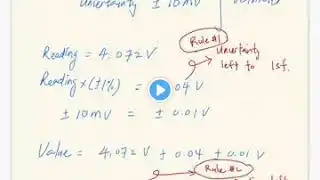 Uncertainty ± 10mV
Rule #1
Reading = 4.072 V
Uncertainty
left to 1sf.
Reading × (±1%) = .04 V
± 10mV = ± 0.01 V
Value = 4.072 V ± 0.04 ± 0.01 V
Rule #2